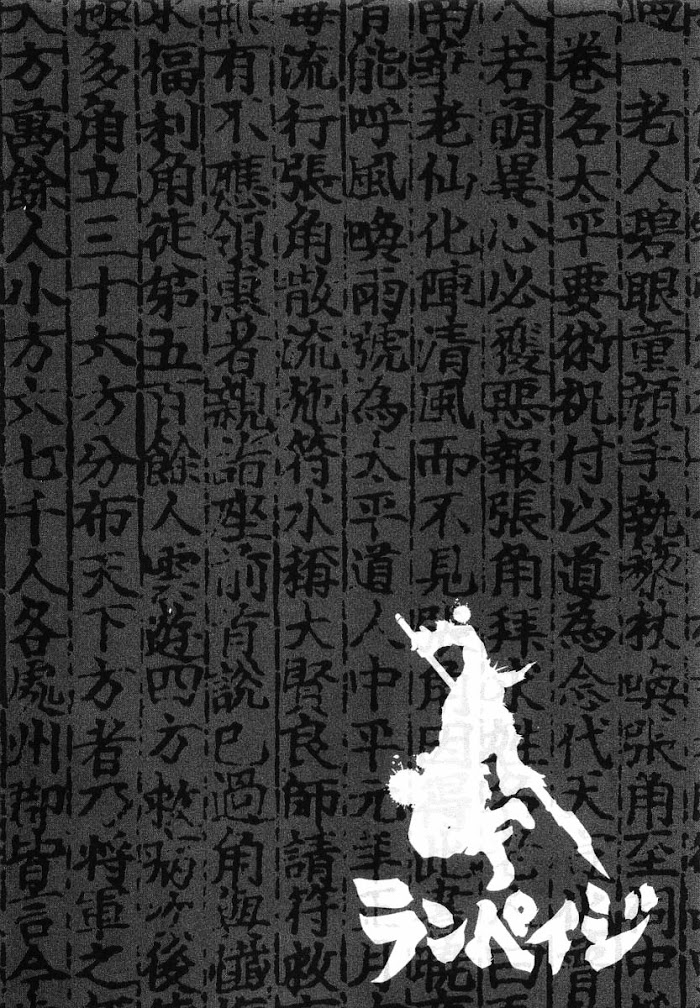 一老人碧眼童顔手執藜杖喚張角至洞中
一卷名太平要術祝付以道為念代天
若萌異心必獲惡報張角拜
老仙化陣清風而不見
有能呼風喚雨號為太平道人中平元年
毒流行張角散流施符水稱大賢良師請符救
有不應領惠者親詣座前首說已過角迴懺
水福利角徒弟五百餘人雲遊四方救病次後
極多角立三十六方分布天下方者乃將軍之
大方萬餘人小方六七千人各處州郡皆言今
ランペイジ